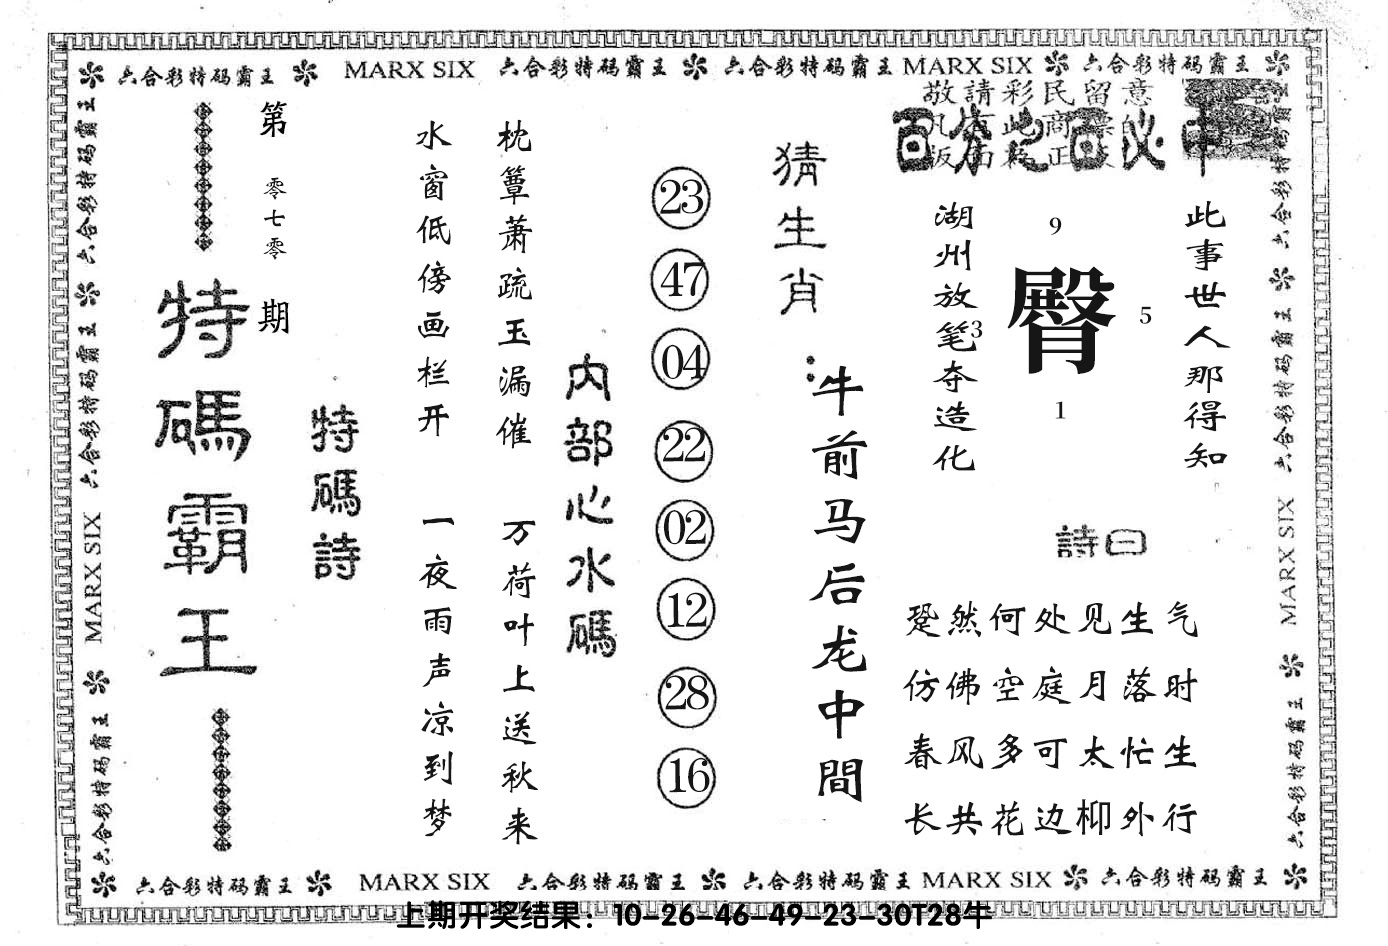 六合彩特码霸王 MARX SIX 六合彩特码霸王 六合彩特码霸王 MARX SIX 六合彩特码霸王
敬請彩民留意
百分之百必中
此事世人那得知
9
臀
5
3
1
湖州放笔夺造化
詩曰
跫然何处见生气
仿佛空庭月落时
春风多可太忙生
长共花边柳外行
猜生肖：
牛前马后龙中間
23
47
04
22
02
12
28
16
内部心水碼
枕簟萧疏玉漏催
万荷叶上送秋来
水窗低傍画栏开
一夜雨声凉到梦
特碼詩
第零七零期
特碼霸王
六合彩特码霸王
六合彩特码霸王
MARX SIX
六合彩特码霸王
六合彩特码霸王
六合彩特码霸王
MARX SIX
六合彩特码霸王
六合彩特码霸王 MARX SIX 六合彩特码霸王 六合彩特码霸王 MARX SIX 六合彩特码霸王
上期开奖结果：10-26-46-49-23-30T28牛